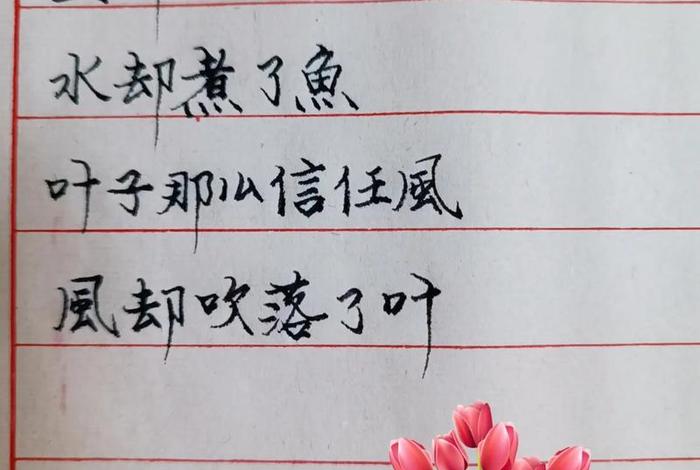 水却煮了魚
叶子那么信任風
風却吹落了叶